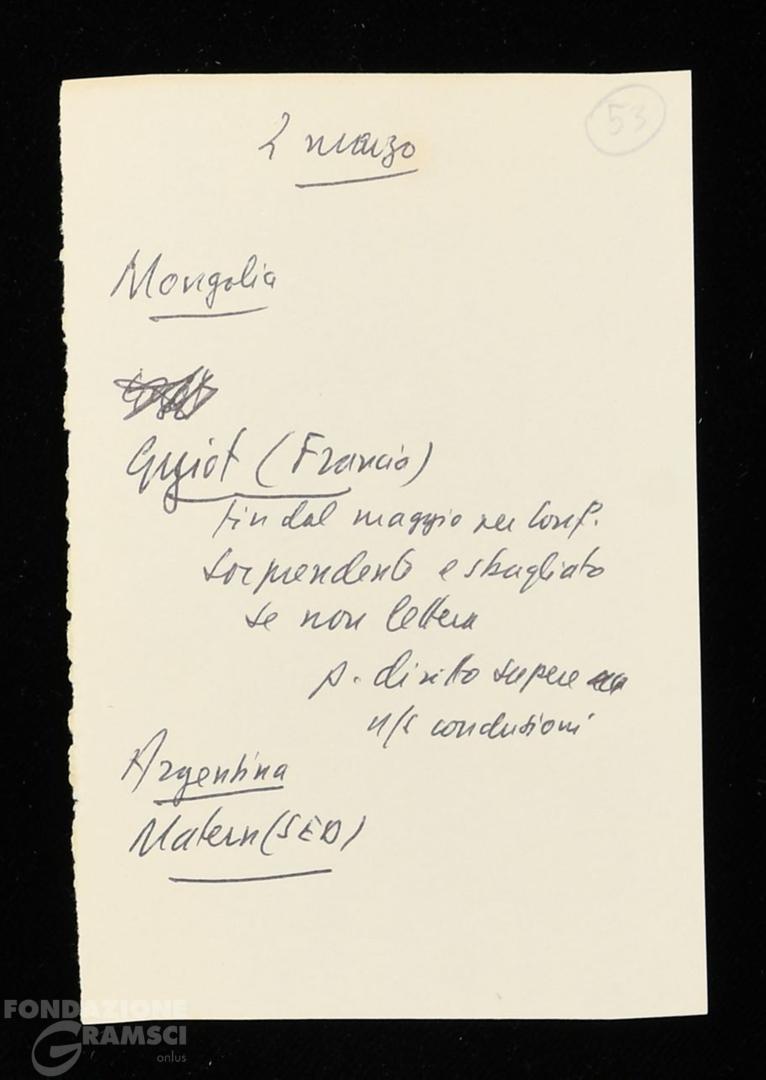 53
2 marzo
Mongolia
Guyot (Francia)
fin dal maggio per Conf.
sorprendente e sbagliato
se non lettera
p. diritto sapere
n/s conclusioni
Argentina
Matern (SED)
FONDAZIONE
GRAMSCI
onlus